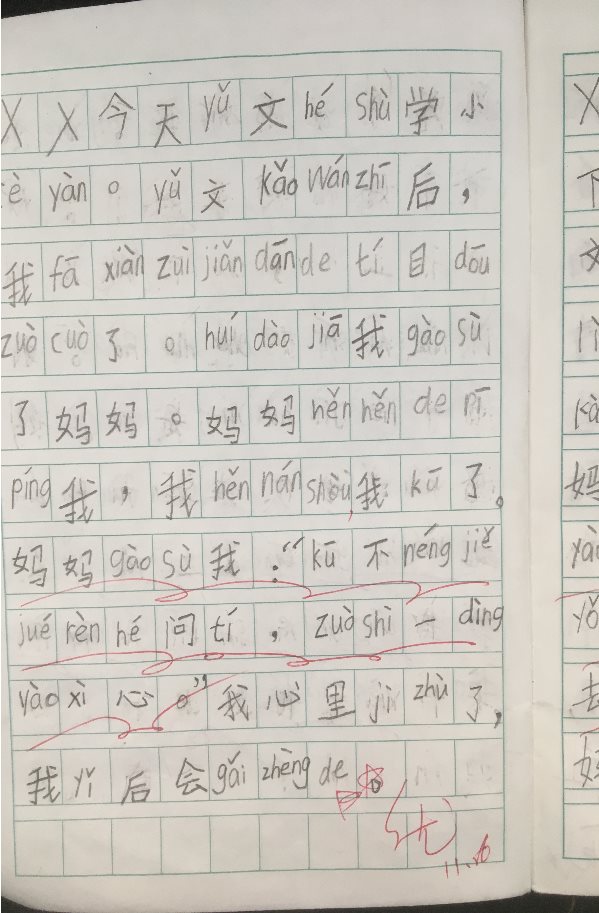 乂乂今天yǔ文hé shù学小
cè yàn。yǔ文kǎo wán zhī后，
我fā xiàn zuì jiǎn dān de tí目dōu
zuò cuò了。huí dào jiā我gào sù
了妈妈。妈妈hěn hěn de pī
píng我，我hěn nán shòu,我kū了。
妈妈gào sù我：“kū不néng jiě
jué rèn hé问tí，zuò shì一dìng
yào xì心。”我心里jì zhù了，
我yǐ后会gǎi zhèng de。
优